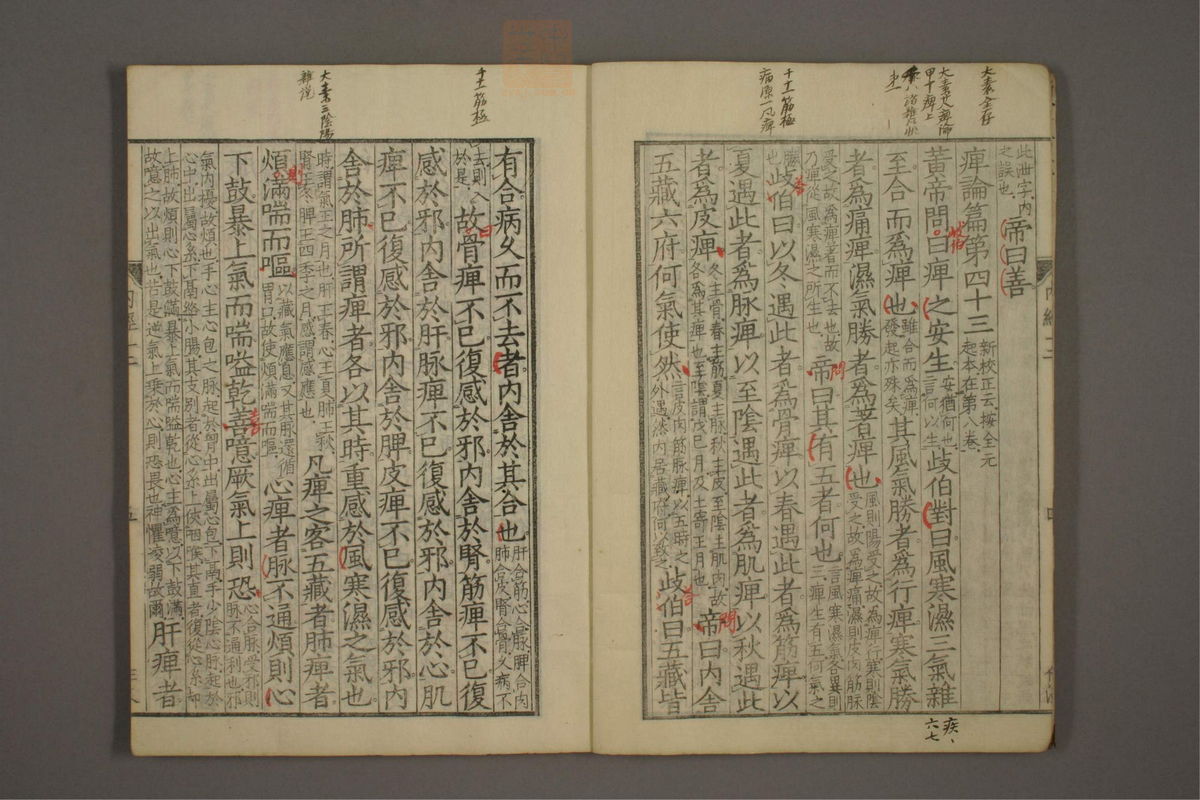 大素全存
大素廿八 痺論
甲十 痺上
千十一 筋極
病原一 風痺
此泄字内
之誤也
帝曰善
痺論篇第四十三
新校正云按全元
起本在第八卷
黄帝問曰痺之安生
安猶何也
言何以生
歧伯對曰風寒濕三氣雜
至合而爲痺也
雖合而爲痺
發起亦殊矣
其風氣勝者爲行痺寒氣勝
者爲痛痺濕氣勝者爲著痺也
風則陽受之故爲痺行寒則陰
受之故爲痺痛濕則皮肉筋脉
受之故爲痺著而不去也故
乃痺從風寒濕之所生也
帝曰其有五者何也
言風寒濕氣各異則
三痺生有五何氣之
勝也
歧伯曰以冬遇此者爲骨痺以春遇此者爲筋痺以
夏遇此者爲脉痺以至陰遇此者爲肌痺以秋遇此
者爲皮痺
冬主骨春主筋夏主脉秋主皮至陰主肌肉故
各爲其痺也至陰謂戊己月及土寄王月也
帝曰内舍
五藏六府何氣使然
言皮肉筋脉痺以五時之
外遇然内居藏府何以致之
歧伯曰五藏皆
疾、
六七
千十一 筋極
大素第三陰陽
雜説
有合病久而不去者内舍於其合也
肝合筋心合脉脾合肉
肺合皮腎合骨久病不
去則入
於是
故骨痺不已復感於邪内舍於腎筋痺不已復
感於邪内舍於肝脉痺不已復感於邪内舍於心肌
痺不已復感於邪内舍於脾皮痺不已復感於邪内
舍於肺所謂痺者各以其時重感於風寒濕之氣也
時謂氣王之月也肝王春心王夏肺王秋
腎王冬脾王四季之月感謂感應也
凡痺之客五藏者肺痺者
煩滿喘而嘔
以藏氣應息又其脉還循
胃口故使煩滿喘而嘔
心痺者脉不通煩則心
下鼓暴上氣而喘嗌乾善噫厥氣上則恐
心合脉受邪則
脉不通利也邪
氣内擾故煩也手心主心包之脉起於胷中出屬心包下鬲手少陰心脉起於
心中出屬心系下鬲絡小腸其支別者從心系上俠咽喉其直者復從心系却
上肺故煩則心下鼓滿暴上氣而喘嗌乾也心主爲噫以下鼓滿
故噫之以出氣也若是逆氣上乗於心則恐畏也神懼凌弱故爾
肝痺者